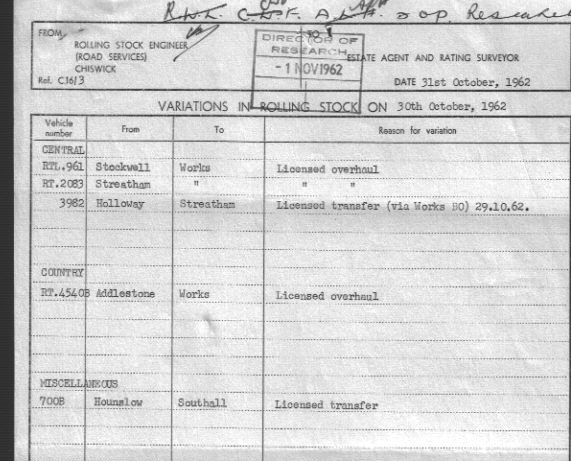 R.W.L. C.D.F. A.D.H. & op. Research
FROM
ROLLING STOCK ENGINEER
(ROAD SERVICES)
CHISWICK
Ref. C16/3
TO
DIRECTOR OF
RESEARCH
-1 NOV 1962
ESTATE AGENT AND RATING SURVEYOR
DATE 31st October, 1962
VARIATIONS IN ROLLING STOCK ON 30th October, 1962
Vehicle number From To Reason for variation
CENTRAL
RTL.961 Stockwell Works Licensed overhaul
RT.2083 Streatham " " "
3982 Holloway Streatham Licensed transfer (via Works BO) 29.10.62.
COUNTRY
RT.4540B Addlestone Works Licensed overhaul
MISCELLANEOUS
700B Hounslow Southall Licensed transfer